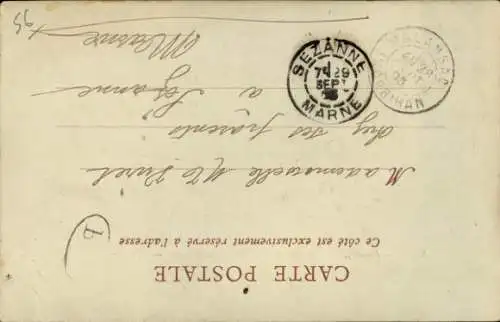 CARTE POSTALE
Ce côté est exclusivement réservé à l'adresse
Mademoiselle
chez ses parents
à Sézanne
Marne
SEZANNE
7 29
SEPT
MARNE
MORBIHAN